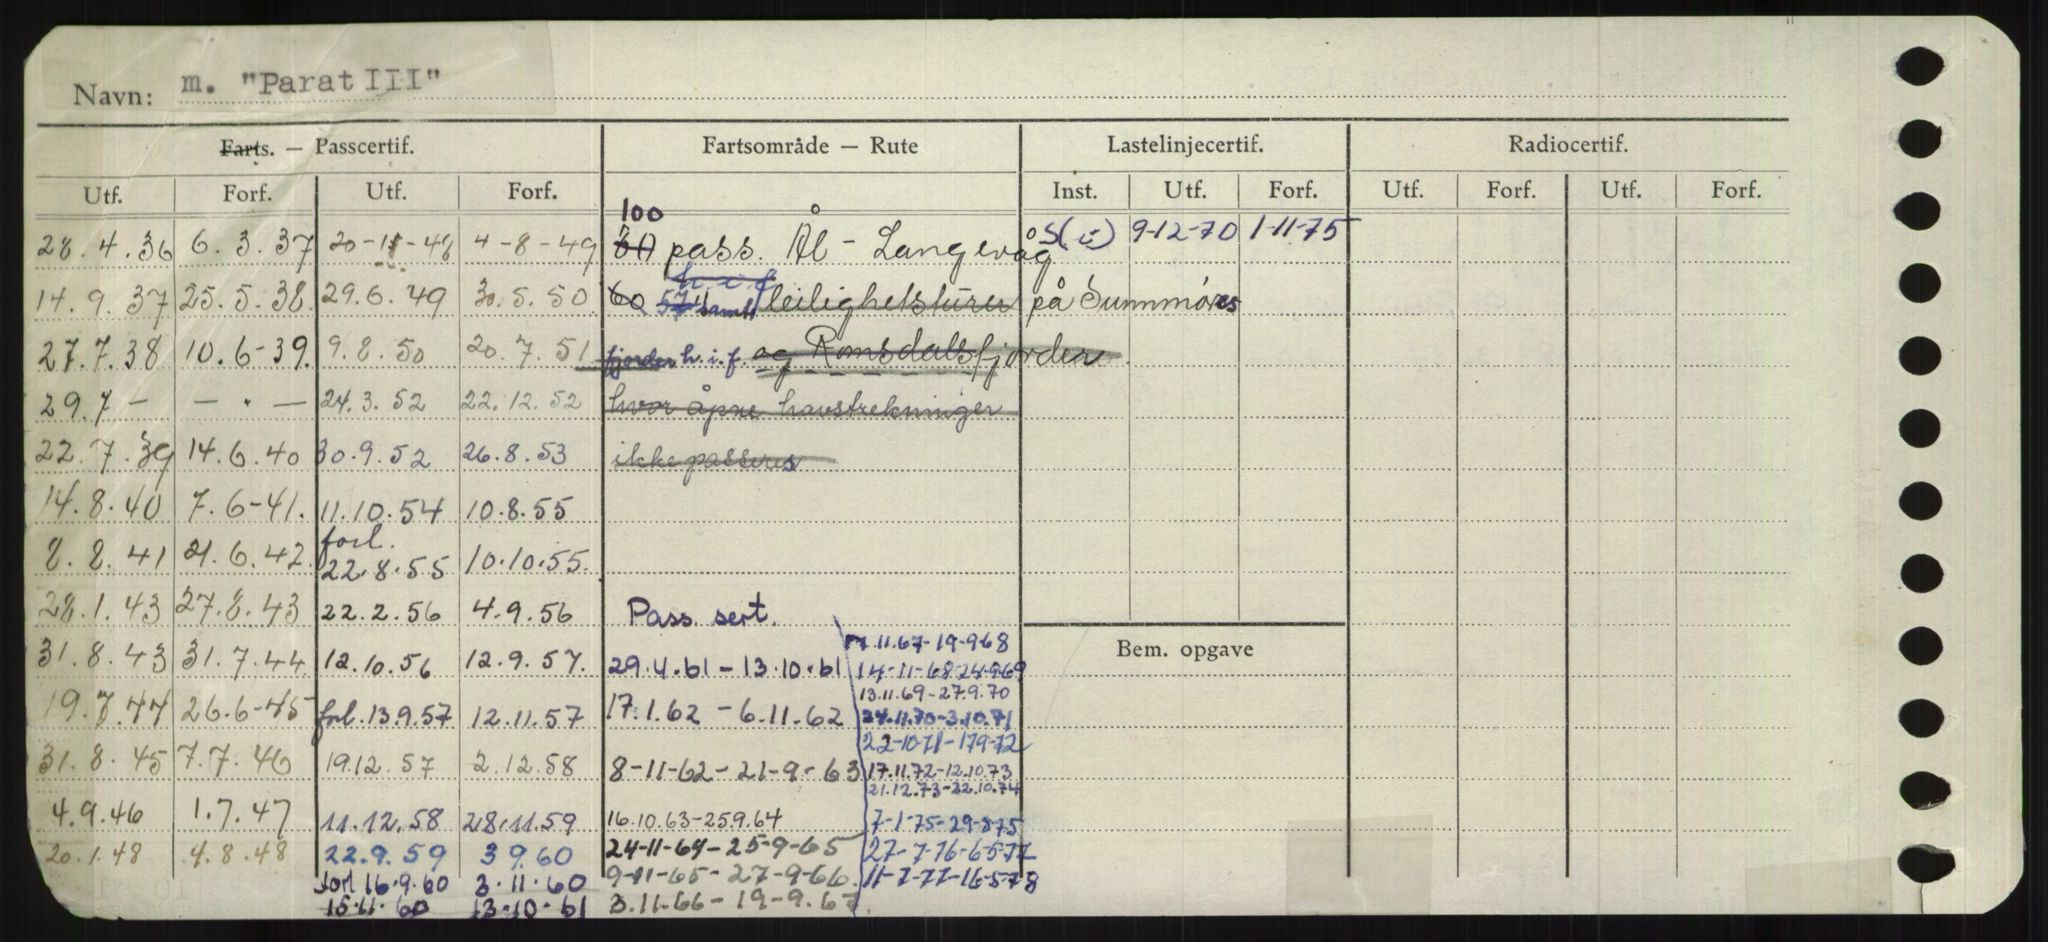 Navn: m. "Parat III"
Farts. — Passcertif. Fartsområde — Rute Lastelinjecertif. Radiocertif.
Utf. Forf. Utf. Forf. Inst. Utf. Forf. Utf. Forf. Utf. Forf.
100
28.4.36 6.3.37 20-11-48 4-8-49 pass. Ål - Langevåg S( ) 9-12-70 1-11-75
h.i.f
14.9.37 25.5.38 29.6.49 30.5.50 60 57 samt leilighetsturer på Sunnmøres
27.7.38 10.6-39. 9.8.50 20.7.51 fjorder h.i.f. og Romsdalsfjorden.
29.7 — — " — 24.3.52 22.12.52 hvor åpne havstrekninger
22.7.39 14.6.40 30.9.52 26.8.53 ikke passeres
14.8.40 7.6-41. 11.10.54 10.8.55
forl.
8.8.41 21.6.42 22.8.55 10.10.55.
28.1.43 27.8.43 22.2.56 4.9.56 Pass. sert.
11.67-19-9-68 Bem. opgave
31.8.43 31.7.44 12.10.56 12.9.57. 29.4.61-13.10.61 14-11-68-24-9-69
13.11.69-27.9.70
19.7.44 26.6-45 forl. 13.9.57 12.11.57 17.1.62 - 6.11.62 24.11.70-3.10.71
22-10-71-17-9-72
31.8.45 7.7.46 19.12.57 2.12.58 8-11-62-21-9-63 17.11.72-12.10.73
21.12.73-22.10.74
4.9.46 1.7.47 11.12.58 28.11.59 16.10.63-25.9.64 7-1-75-29-8-75
20.1.48 4.8.48 22.9.59 3.9.60 24-11-64-25-9-65 27-7-76-6-5-77
forl 16.9.60 3.11.60 9-11-65-27-9-66. 11-7-77-16-5-78
15.11.60 13.10.61 3.11-66-19-9.67.